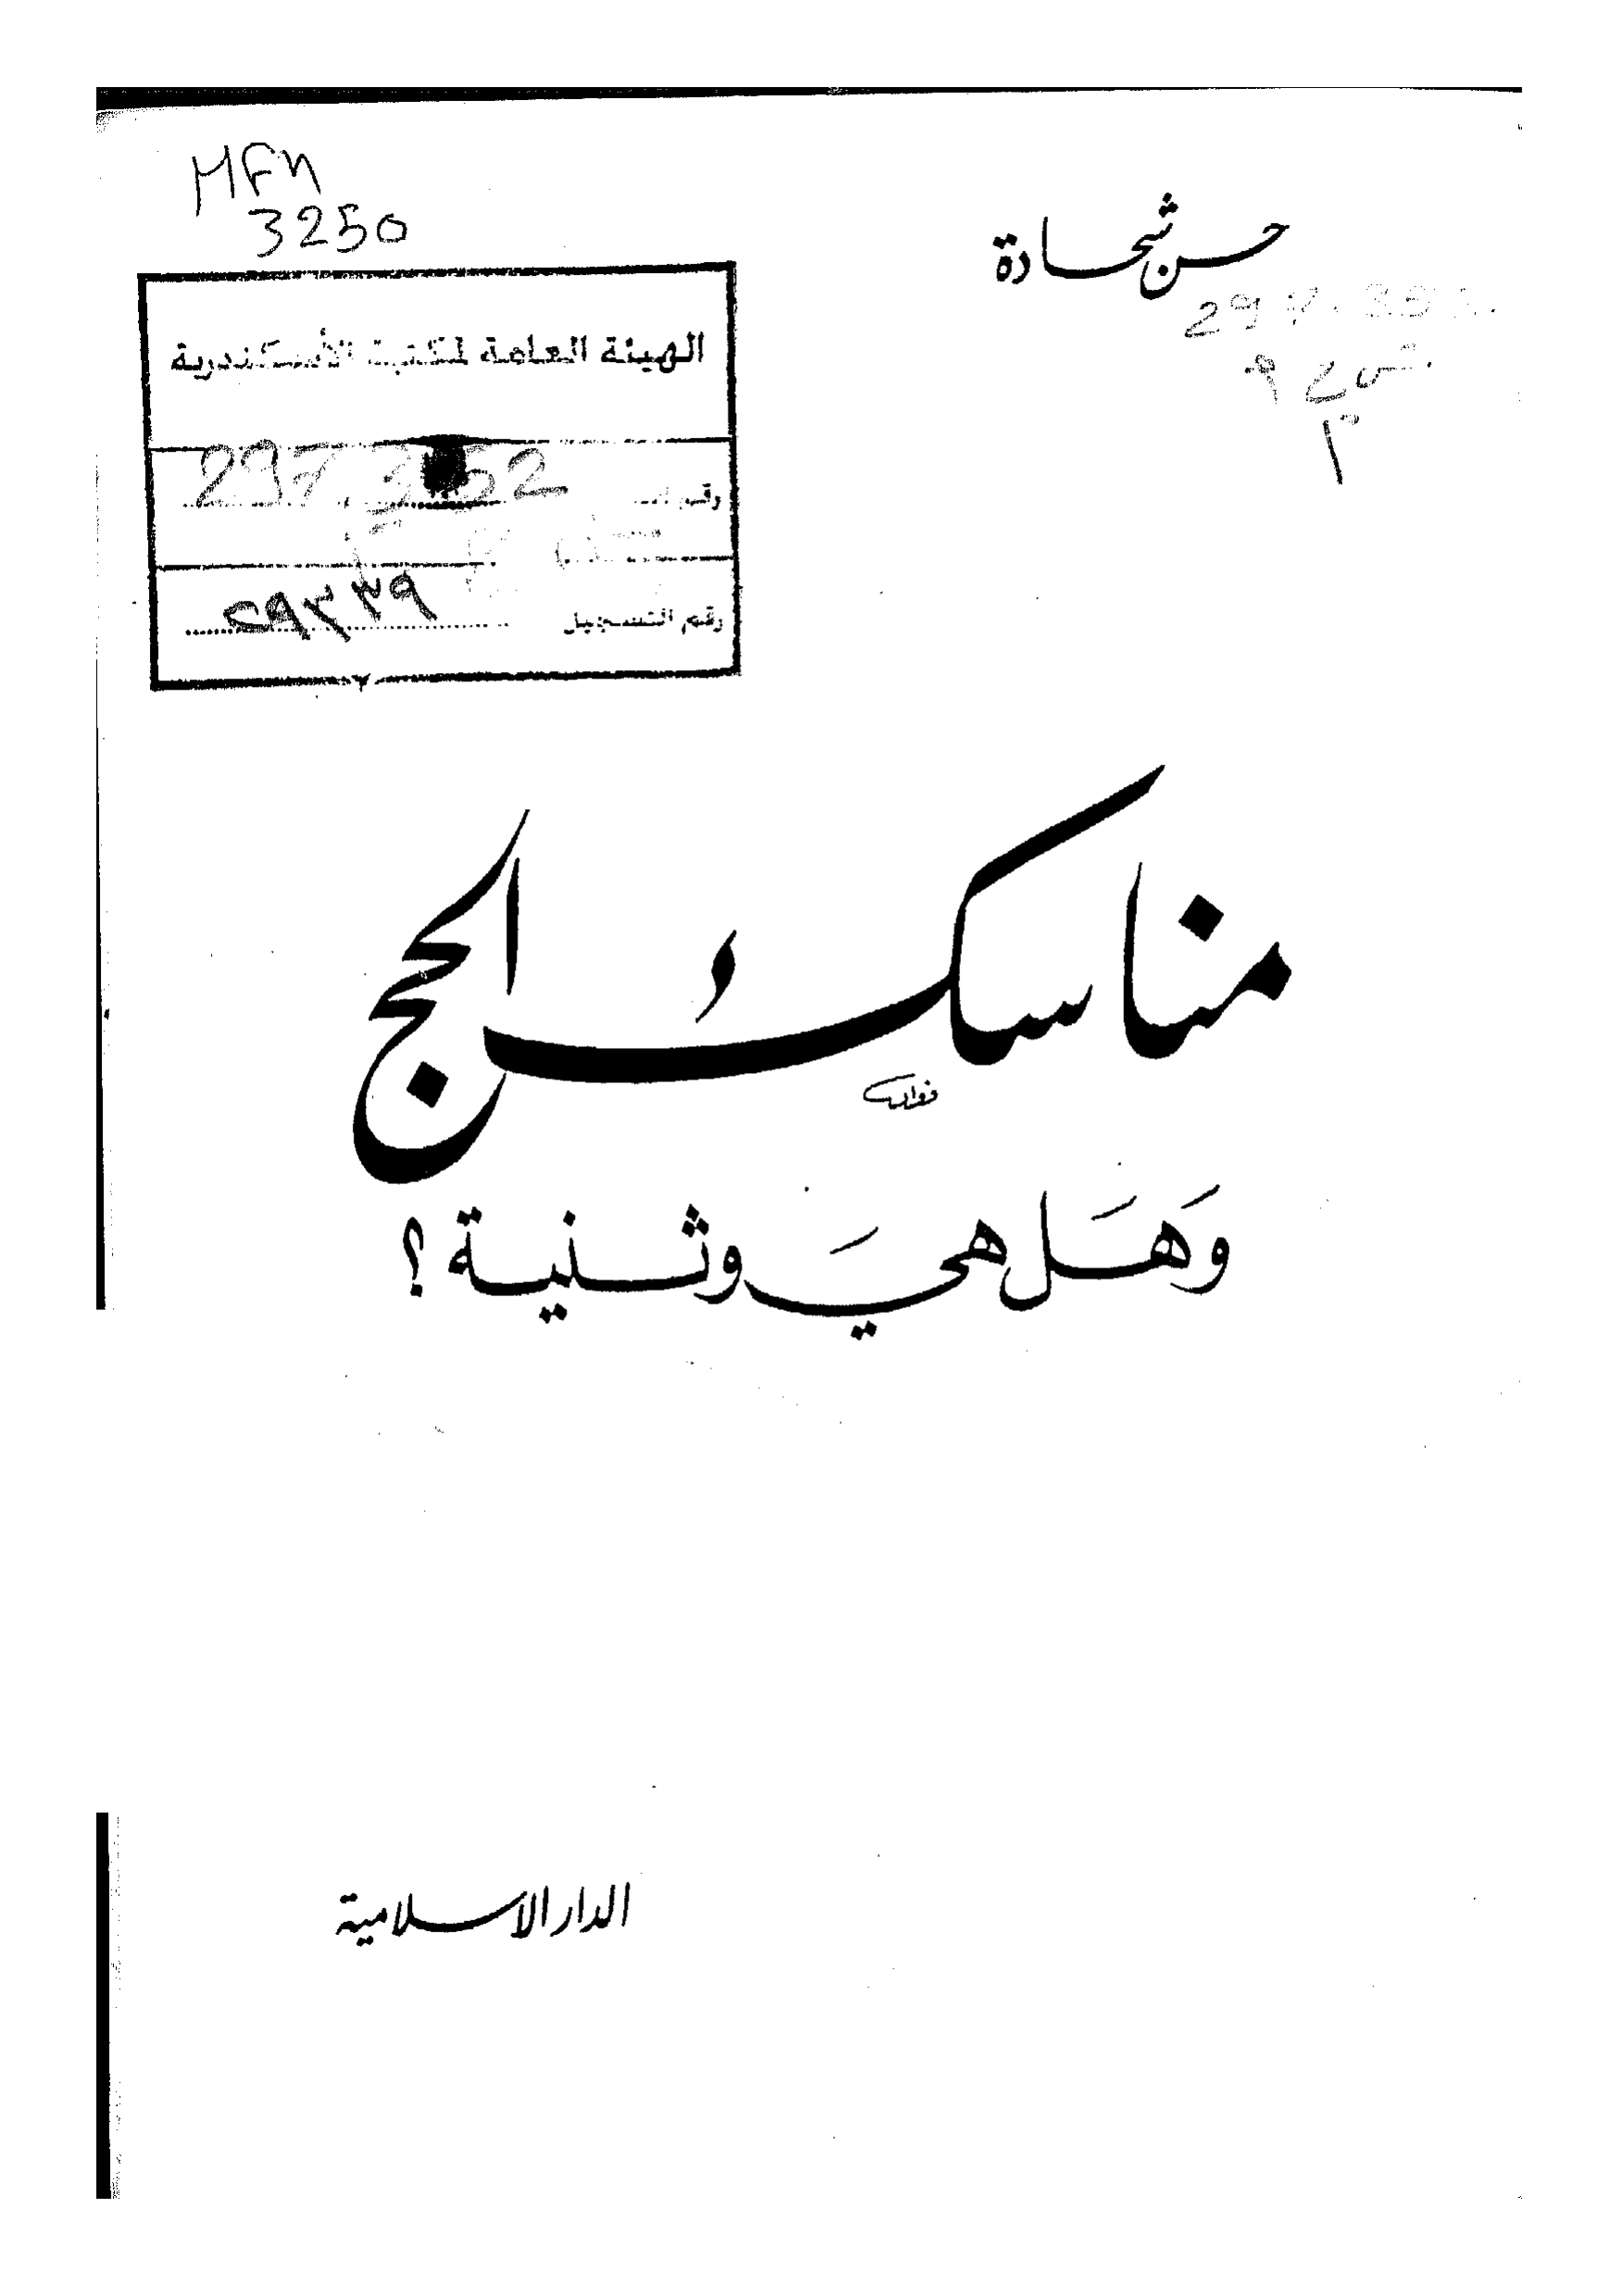 MFN
3250
حسن شحادة
الهيئة العامة لمكتبة الأسكندرية
رقم
رقم التسجيل ٢٩٣٣٩
مناسك الحج
وَهَل هيَ وثنية؟
الدار الاسلامية